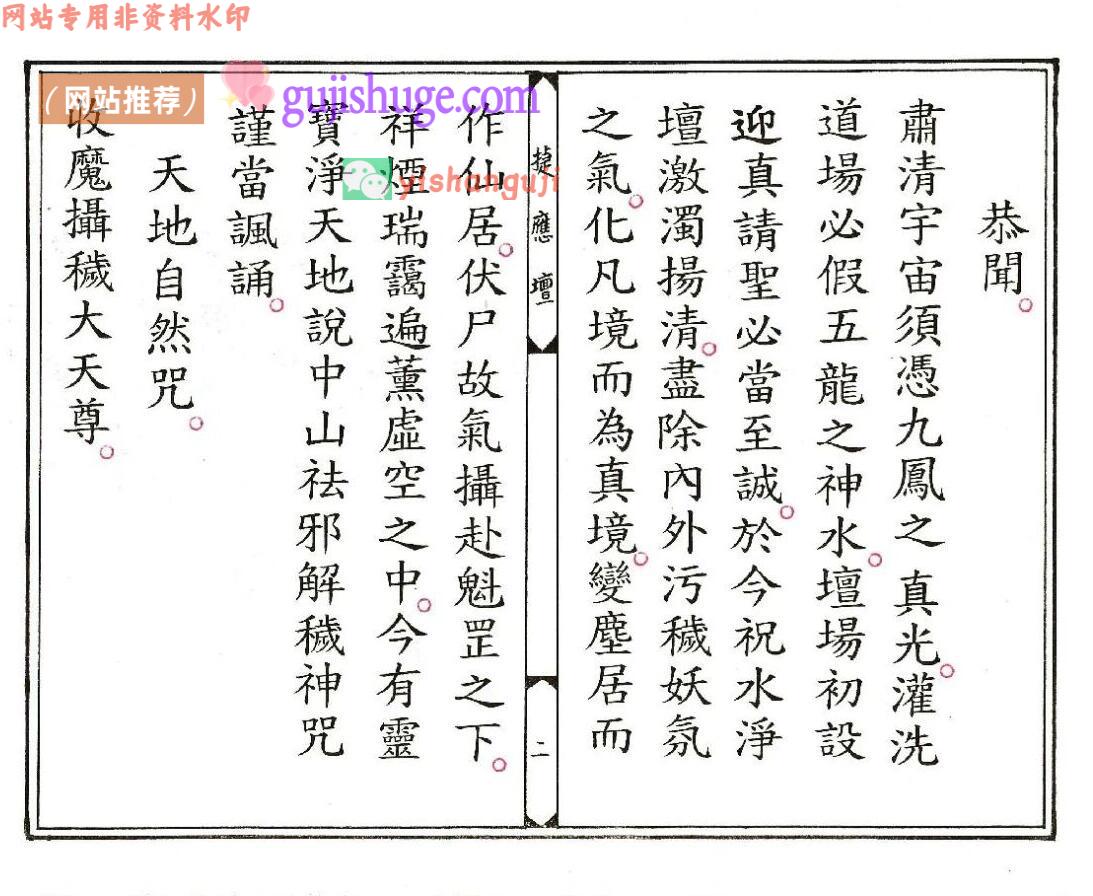 网站专用非资料水印
（网站推荐）
gujishuge.com
yishanguji
恭聞。
肅清宇宙須憑九鳳之真光。灌洗
道場必假五龍之神水。壇場初設
迎真請聖必當至誠。於今祝水淨
壇激濁揚清。盡除內外污穢妖氛
之氣。化凡境而為真境。變塵居而
捷應壇
二
作仙居。伏尸故氣攝赴魁罡之下。
祥煙瑞靄遍薰虛空之中。今有靈
寶淨天地說中山祛邪解穢神咒
謹當諷誦。
天地自然咒。
收魔攝穢大天尊。